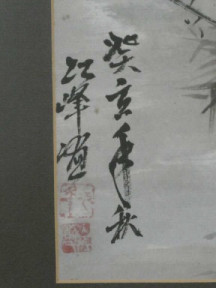 癸亥年秋
江峰画